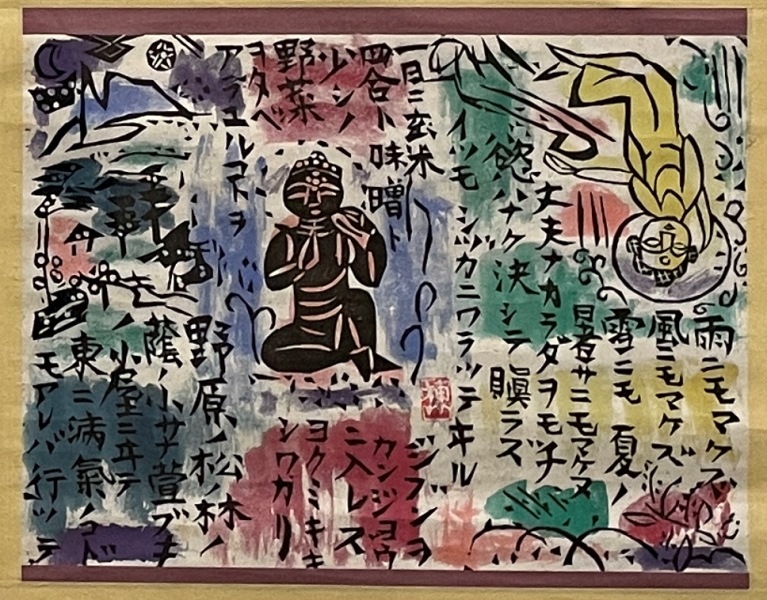 雨ニモマケズ
風ニモマケズ
雪ニモ夏ノ
暑サニモマケヌ
丈夫ナカラダヲモチ
慾ハナク決シテ瞋ラズ
イツモシヅカニワラッテヰル
一日ニ玄米
四合ト味噌ト
少シノ
野菜
ヲタベ
アラユルコトヲ
ジブンヲ
カンジョウ
ニ入レズ
ヨクミキキ
シワカリ
野原ノ松ノ林ノ
蔭ノ小サナ萱ブキ
ノ小屋ニヰテ
東ニ病氣ノコド
モアレバ行ッテ